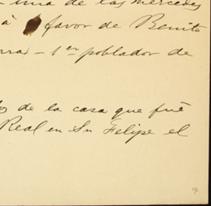 una de las mercedes
à favor de Benito
- 1er poblador de
de la casa que fué
Real en Sn Felipe el